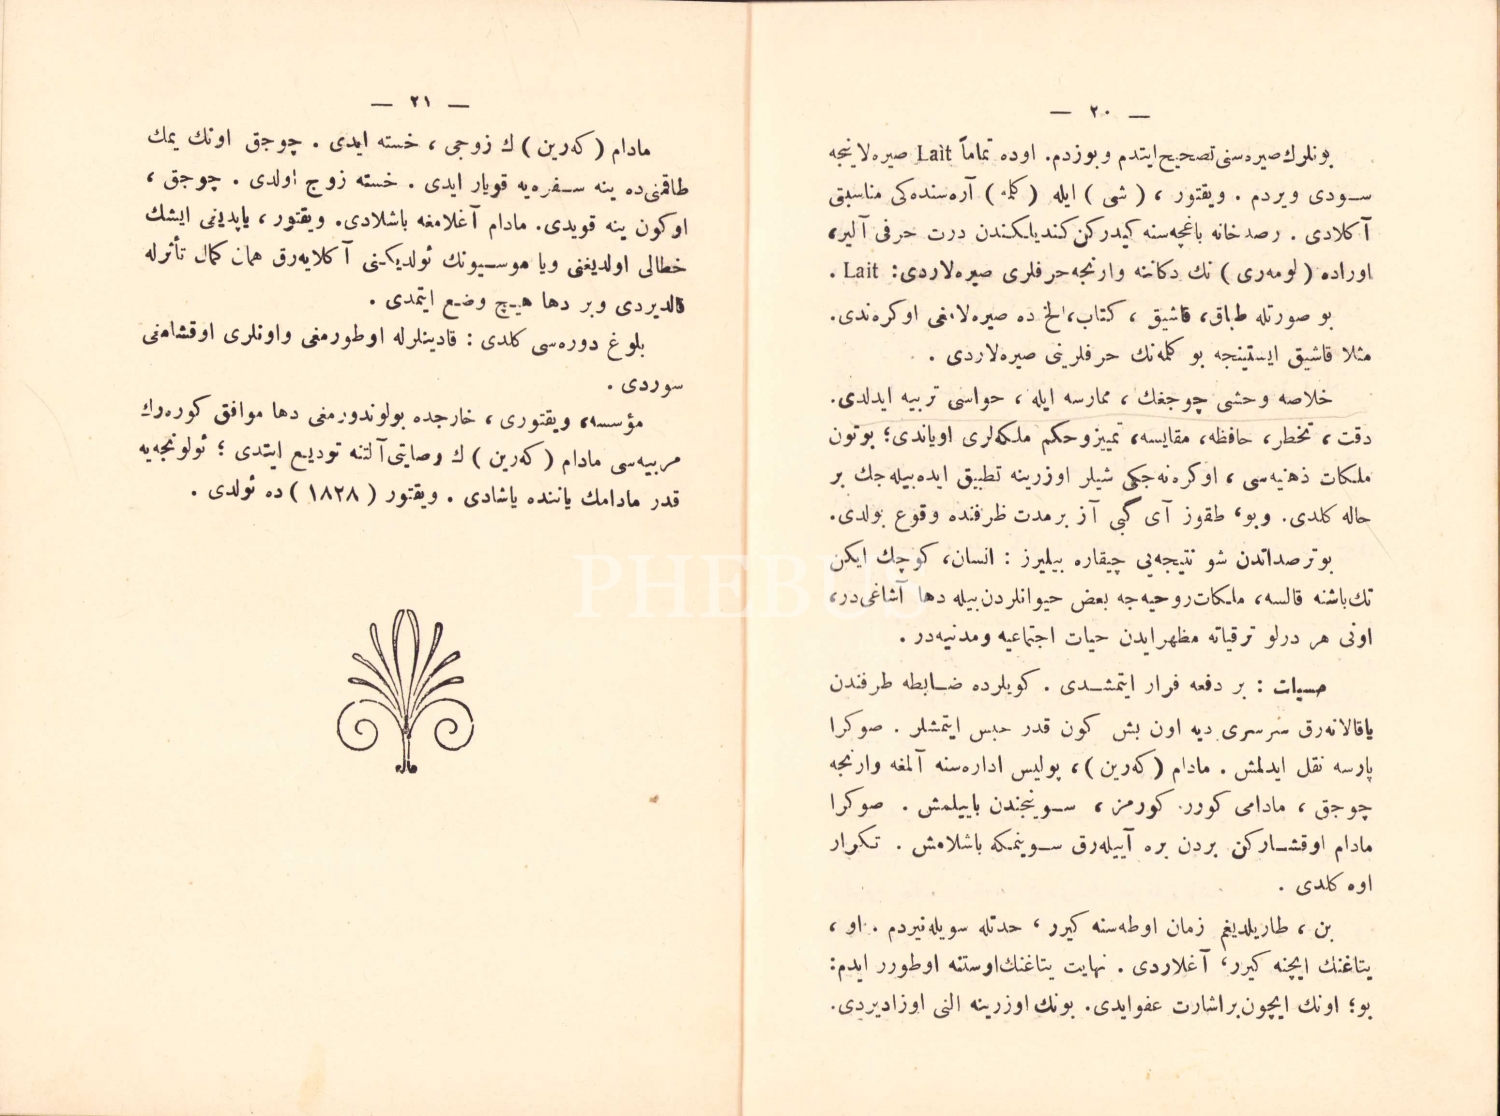 — ٢٠ —
بونلرك صیره‌سنی تصحیح ایتدم و بوزدم. اوده تماماً Lait صیره‌لاینجه
سودی ویردم . ویقتور ، ( شی ) ایله ( كلمه ) آره‌سنده‌كی مناسبتی
آكلادی . رصدخانه باغچه‌سنه كیدركن كندیلكندن درت حرفی آلیر،
اوراده ( لومه‌ری ) نك دكاننه وارنجه حرفلری صیره‌لاردی: Lait .
بو صورتله طباق، قاشیق ، كتاب، الخ ده صیره‌لامغی اوكره‌ندی.
مثلا قاشیق ایستینجه بو كلمه‌نك حرفلرینی صیره‌لاردی .
خلاصه وحشی چوجغك ، ممارسه ایله ، حواسی تربیه ایدلدی.
دقت، تخطر، حافظه، مقایسه، تمییز و حكم ملكه‌لری اویاندی؛ بوتون
ملكات ذهنیه‌سی ، اوكره‌نه‌جكی شیلر اوزرینه تطبیق ایده‌بیله‌جك بر
حاله كلدی. وبو، طقوز آی كبی آز بر مدت ظرفنده وقوع بولدی.
بو ترصداتدن شو نتیجه‌یی چیقاره بیلیرز : انسان، كوچك ایكن
تك باشنه قالسه، ملكات روحیه‌جه بعض حیوانلردن بیله دها آشاغی‌در،
اونی هر درلو ترقیاته مظهر ایدن حیات اجتماعیه و مدنیه‌در .
حسیات : بر دفعه فرار ایتمشدی . كویلرده ضابطه طرفندن
یاقالانه‌رق سرسری دیه اون بش كون قدر حبس ایتمشلر . صوكرا
پارسه نقل ایدلمش . مادام (كه‌رین)، پولیس اداره‌سنه آلمغه وارنجه
چوجق ، مادامی كورر كورمز ، سوینجندن باییلمش . صوكرا
مادام اوقشاركن بردن بره آییله‌رق سوینمكه باشلامش . تكرار
اوه كلدی .
بن ، طاریلدیغم زمان اوطه‌سنه كیرر ، حدتله سویله‌نیردم . او ،
یتاغنك ایچنه كیرر، آغلاردی . نهایت یتاغنك اوستنه اوطورر ایدم:
بو؛ اونك ایچون بر اشارت عفو ایدی. بونك اوزرینه النی اوزادیردی.
— ٢١ —
مادام (كه‌رین) ك زوجی ، خسته ایدی . چوجق اونك یمك
طاقمنی‌ده ینه سفره‌یه قویار ایدی . خسته زوج اولدی . چوجق ،
اوكون ینه قویدی. مادام آغلامغه باشلادی. ویقتور ، یاپدیغی ایشك
خطالی اولدیغنی ویا موسیونك ئولدیكنی آكلایه‌رق همان كمال تأثرله
قالدیردی وبر دها هیچ وضع ایتمدی .
بلوغ دوره‌سی كلدی : قادینلرله اوطورمغی واونلری اوقشامغی
سوردی .
مؤسسه، ویقتوری ، خارجده بولوندورمغی دها موافق كوره‌رك
مربیه‌سی مادام (كه‌رین) ك وصایتی آلتنه تودیع ایتدی ؛ ئولونجه‌یه
قدر مادامك یاننده یاشادی . ویقتور ( ١٨٢٨ ) ده ئولدی .
PHEBUS